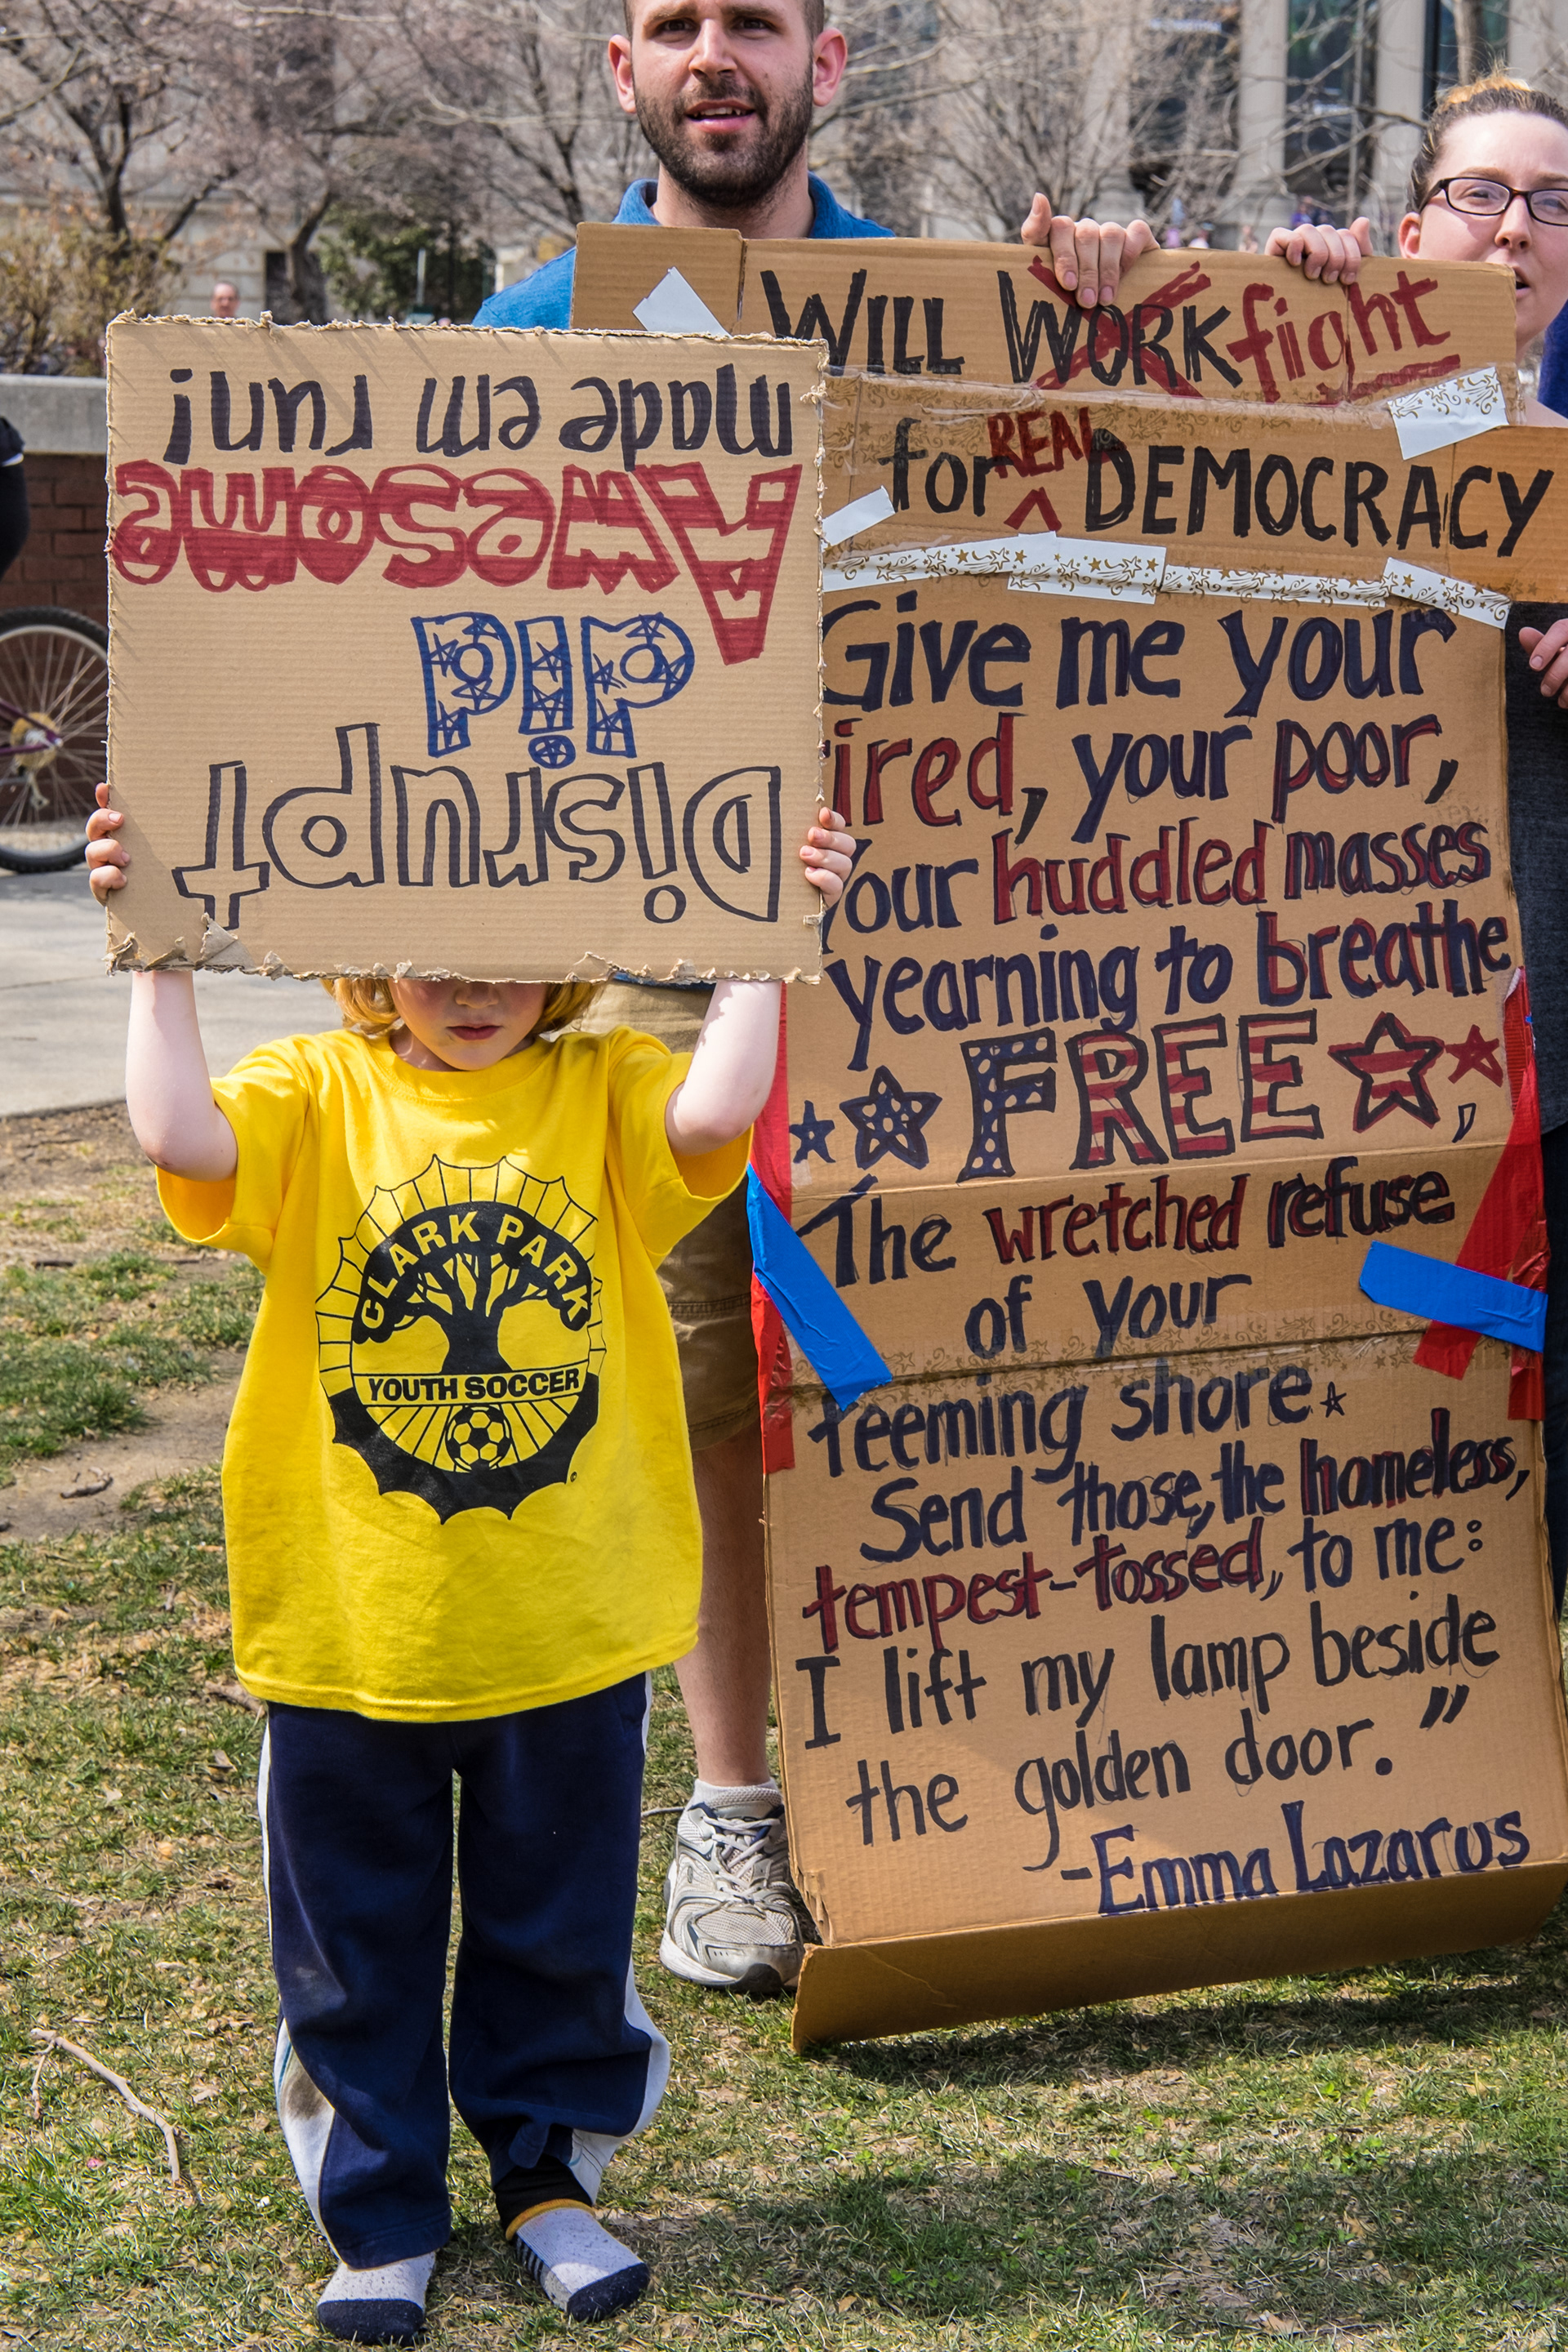 Disrupt
did
Awesome
made em run!
WILL WORK fight
for REAL DEMOCRACY
Give me your
ired, your poor,
Your huddled masses
yearning to breathe
FREE,
The wretched refuse
of your
teeming shore.
Send those, the homeless,
tempest-tossed, to me:
I lift my lamp beside
the golden door."
-Emma Lazarus
CLARK PARK
YOUTH SOCCER